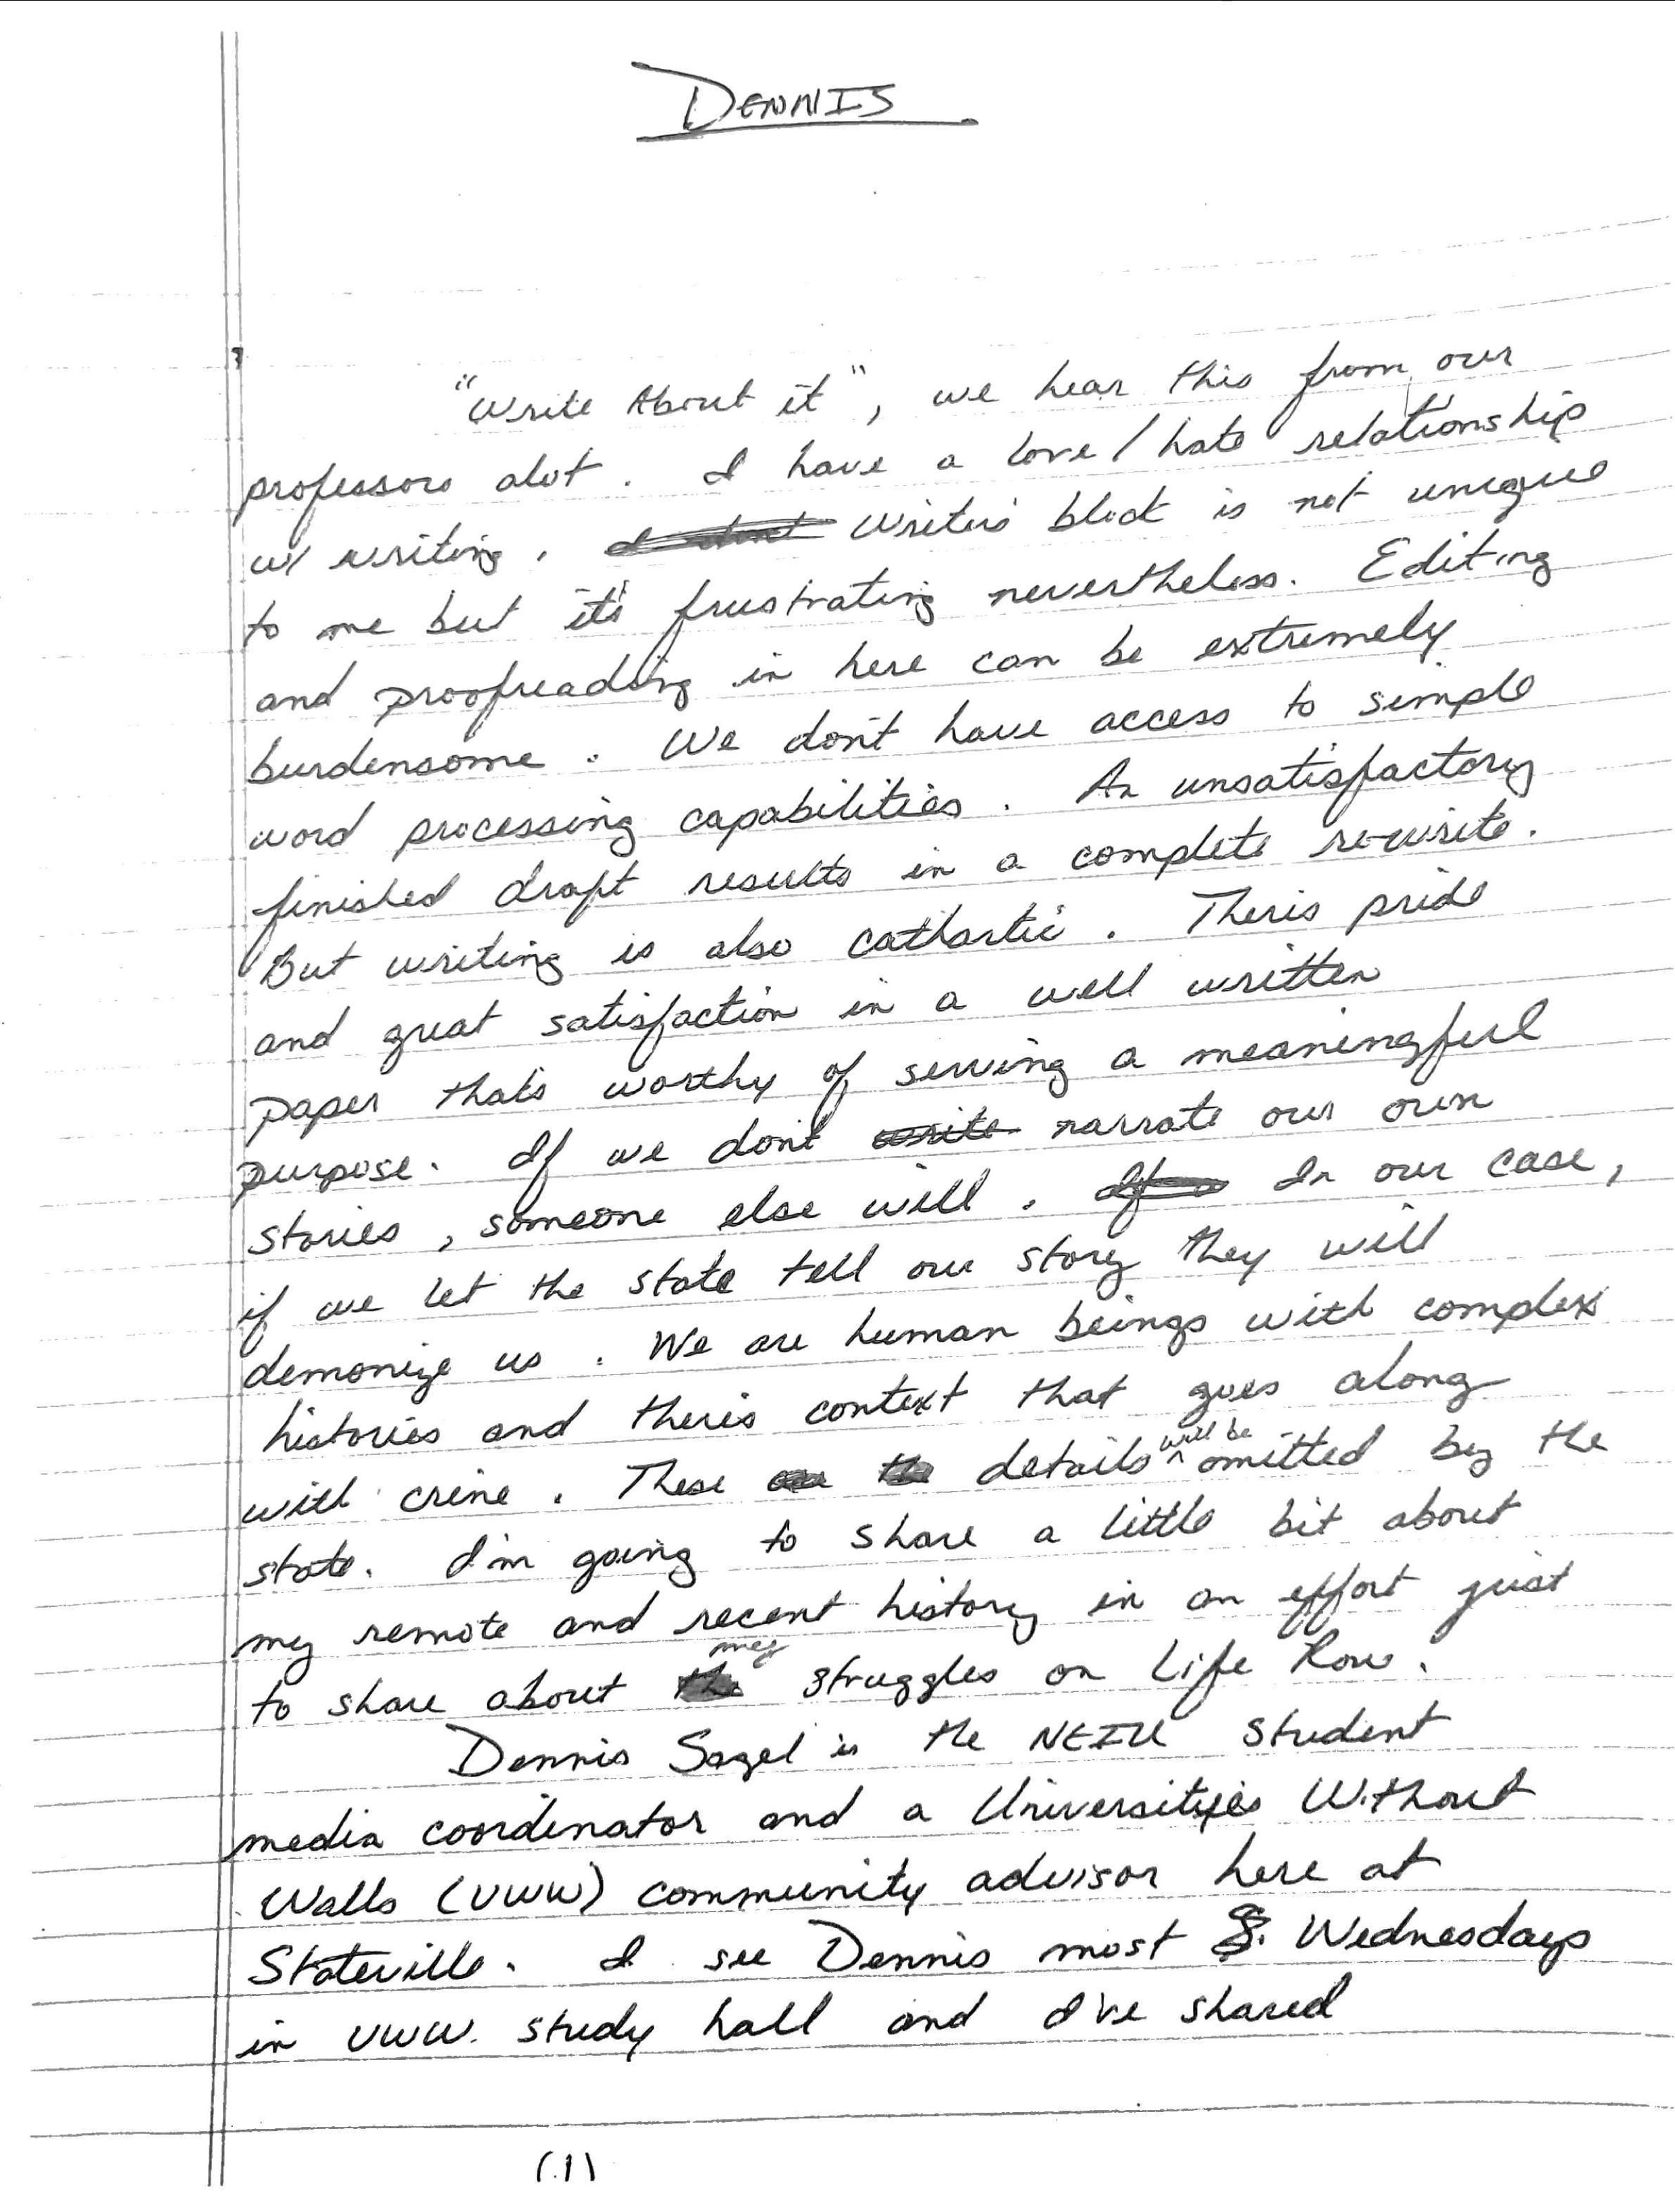 DENNIS
"Write About it", we hear this from our
professors alot. I have a love/hate relationship
w/ writing. Writer's block is not unique
to me but it's frustrating nevertheless. Editing
and proofreading in here can be extremely
burdensome. We don't have access to simple
word processing capabilities. An unsatisfactory
finished draft results in a complete re-write.
But writing is also cathartic. Ther's pride
and great satisfaction in a well written
paper that's worthy of serving a meaningful
purpose. If we don't write narrate our own
stories, someone else will. In our case,
if we let the state tell our story they will
demonize us. We are human beings with complex
histories and ther's context that goes along
with crime. These details will be omitted by the
state. I'm going to share a little bit about
my remote and recent history in an effort just
to share about my struggles on Life Row.
Dennis is the NEIU student
media coordinator and a Universities Without
Walls (UWW) community advisor here at
Stateville. I see Dennis most Wednesdays
in UWW. study hall and I've shared
(1)